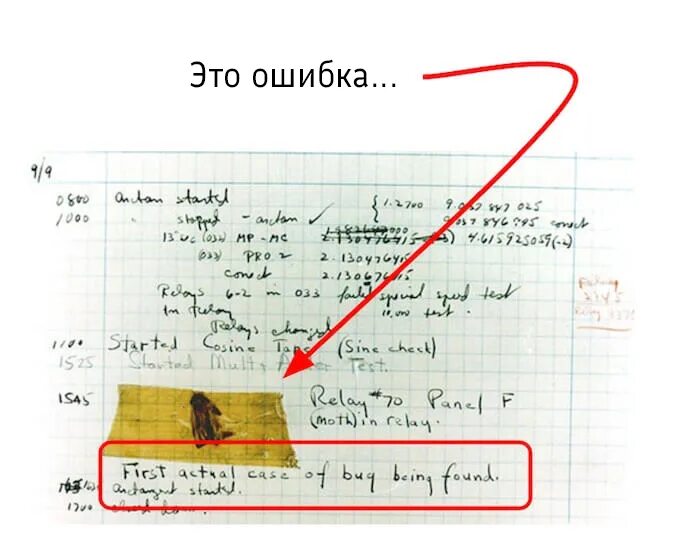 Это ошибка...
9/9
0800 arctan started { 1.2700 9.037 847 025
1000 " stopped - arctan ✓ 9.037 846 995 conect
13"uc (032) MP-MC 2.130476415 4.615925059(-2)
(033) PRO 2 2.130476415
conect 2.130676415
Relays 6-2 in 033 failed special speed test
In Relay 10,000 test.
Relays changed
1100 Started Cosine Tape (Sine check)
1525 Started Mult+ Adder Test.
1545 Relay #70 Panel F
(moth) in relay.
First actual case of bug being found.
arctangent started.
1700 closed down.